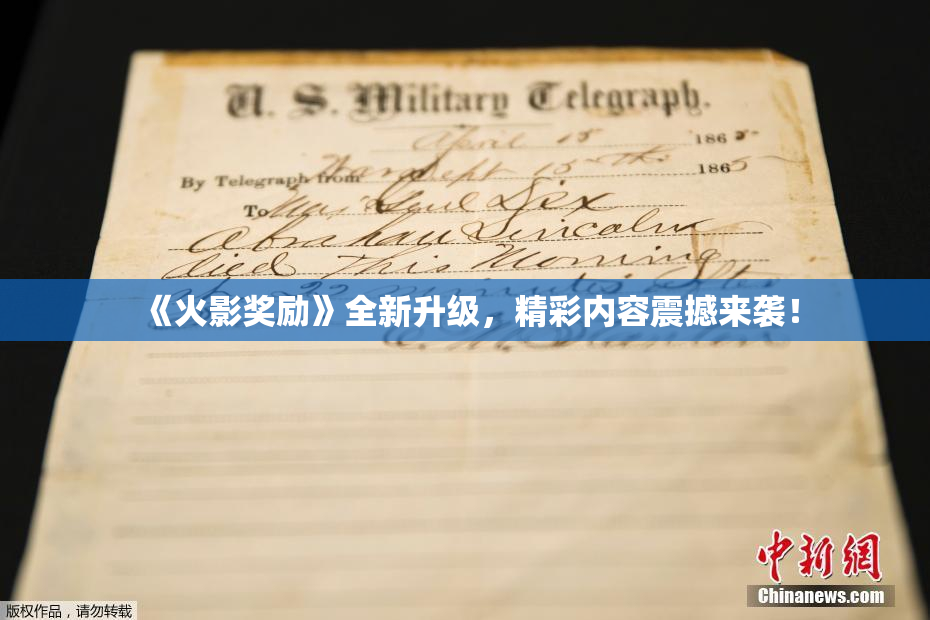 U. S. Military Telegraph.
April 15 1865
By Telegraph from War Dept 15th 1865
To Maj Genl Dix
Abraham Lincoln
died This Morning
at 22 minutes after
《火影奖励》全新升级，精彩内容震撼来袭！
E. M. Stanton
中新網
Chinanews.com
版权作品，请勿转载